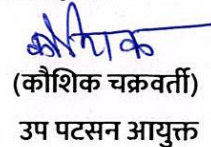 कौशिक
(कौशिक चक्रवर्ती)
उप पटसन आयुक्त